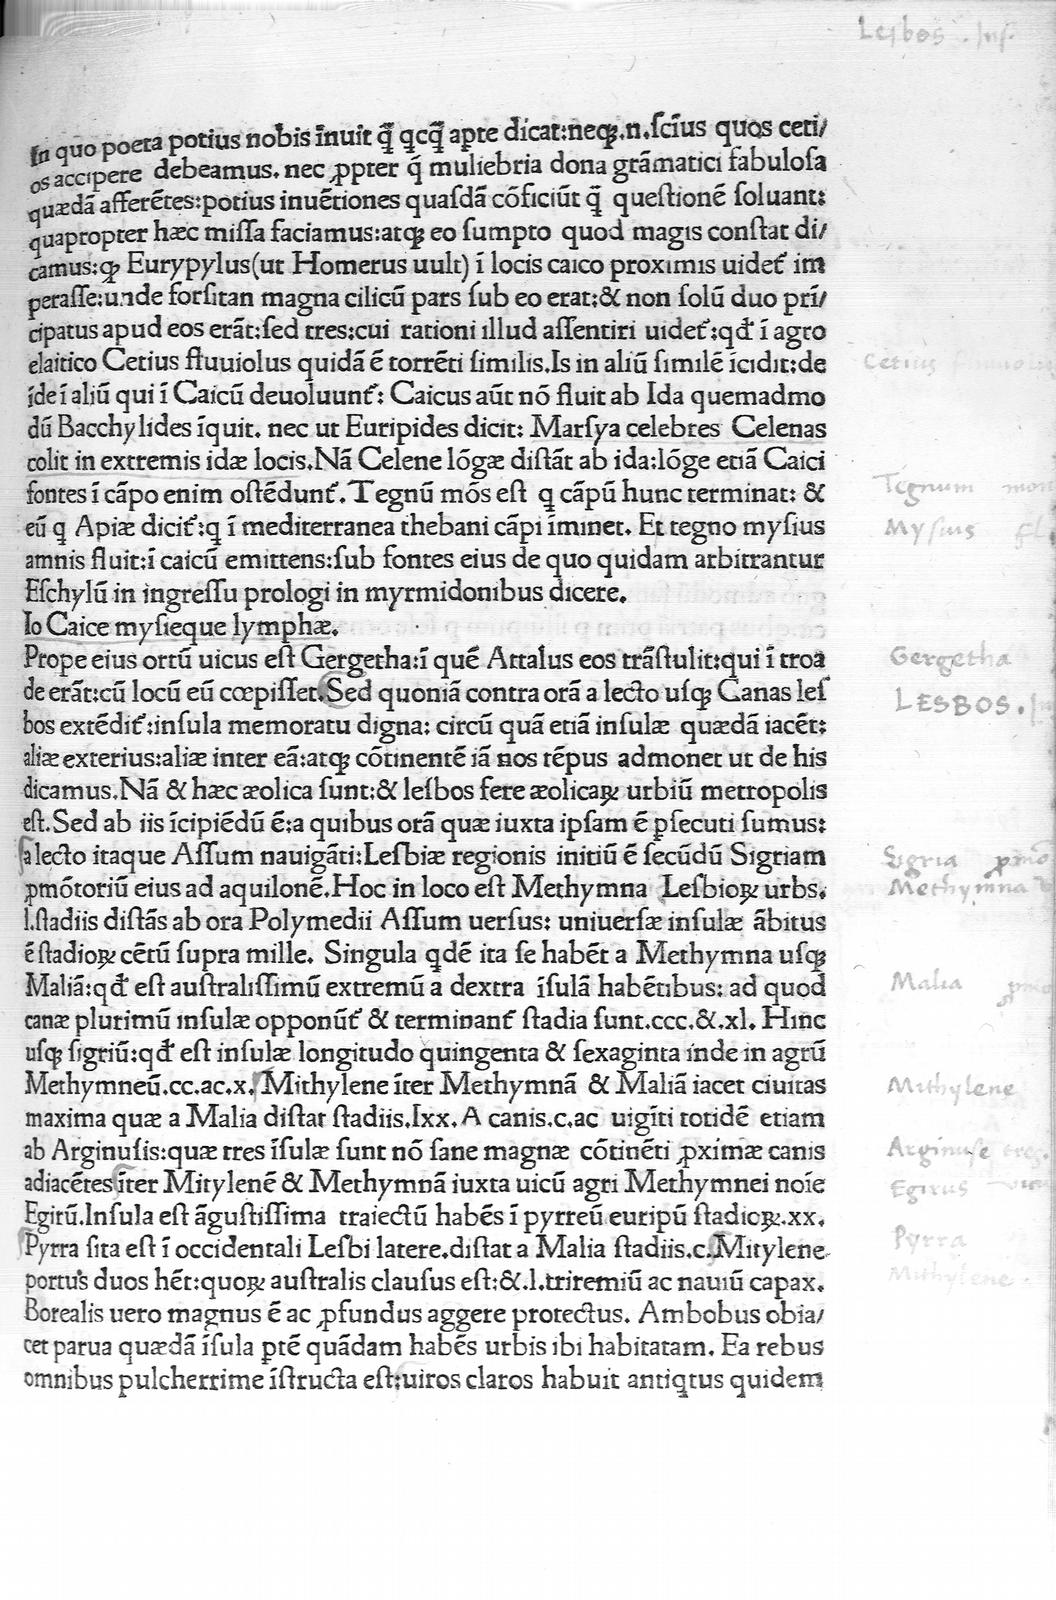 Lesbos . Inſ.
In quo poeta potius nobis īnuit q̄ qcq̄ apte dicat:neqꝫ.n.ſcīus quos ceti/
os accipere debeamus. nec ꝓpter q̄ muliebria dona grāmatici fabuloſa
quædā afferētes:potius inuētiones quaſdā cōficiūt q̄ queſtionē ſoluant:
quapropter hæc miſſa faciamus:atqꝫ eo ſumpto quod magis conſtat di/
camus:qꝫ Eurypylus(ut Homerus uult) ī locis caico proximis uidet᷑ im
peraſſe:unde forſitan magna cilicū pars ſub eo erat:& non ſolū duo pri/
cipatus apud eos erāt:ſed tres:cui rationi illud aſſentiri uidet᷑:qđ ī agro
elaitico Cetius fluuiolus quidā ē torrēti ſimilis.Is in aliū ſimilē īcidit:de
īde ī aliū qui ī Caicū deuoluunt᷑: Caicus aūt nō fluit ab Ida quemadmo
dū Bacchylides īquit. nec ut Euripides dicit: Marſya celebres Celenas
colit in extremis idæ locis.Nā Celene lōgæ diſtāt ab ida:lōge etiā Caici
fontes ī cāpo enim oſtēdunt᷑.Tegnū mōs eſt q cāpū hunc terminat: &
eū q Apiæ dicit᷑:q ī mediterranea thebani cāpi īminet. Et tegno myſius
amnis fluit:ī caicū emittens:ſub fontes eius de quo quidam arbitrantur
Eſchylū in ingreſſu prologi in myrmidonibus dicere.
Io Caice myſieque lymphæ.
Prope eius ortū uicus eſt Gergetha:ī quē Attalus eos trāſtulit:qui ī troa
de erāt:cū locū eū cœpiſſet.Sed quoniā contra orā a lecto uſqꝫ Canas leſ
bos extēdit᷑:inſula memoratu digna: circū quā etiā inſulæ quædā iacēt:
aliæ exterius:aliæ inter eā:atqꝫ cōtinentē iā nos tēpus admonet ut de his
dicamus.Nā & hæc æolica ſunt:& leſbos fere æolicaꝝ urbiū metropolis
eſt.Sed ab iis īcipiēdū ē:a quibus orā quæ iuxta ipſam ē ꝑſecuti ſumus:
a lecto itaque Aſſum nauigāti:Leſbiæ regionis initiū ē ſecūdū Sigriam
ꝓmōtoriū eius ad aquilonē.Hoc in loco eſt Methymna Leſbioꝝ urbs.
l.ſtadiis diſtās ab ora Polymedii Aſſum uerſus: uniuerſæ inſulæ ābitus
ē ſtadioꝝ cētū ſupra mille. Singula qdē ita ſe habēt a Methymna uſqꝫ
Maliā:qđ eſt auſtraliſſimū extremū a dextra īſulā habētibus: ad quod
canæ plurimū inſulæ opponūt᷑ & terminant᷑ ſtadia ſunt.ccc.&.xl. Hinc
uſqꝫ ſigriū:qđ eſt inſulæ longitudo quingenta & ſexaginta inde in agrū
Methymneū.cc.ac.x. Mithylene īter Methymnā & Maliā iacet ciuitas
maxima quæ a Malia diſtat ſtadiis.lxx. A canis.c.ac uigīti totidē etiam
ab Arginuſis:quæ tres īſulæ ſunt nō ſane magnæ cōtinēti ꝓximæ canis
adiacētes īter Mitylenē & Methymnā iuxta uicū agri Methymnei noīe
Egirū.Inſula eſt āguſtiſſima traiectū habēs ī pyrreū euripū ſtadioꝝ.xx.
Pyrra ſita eſt ī occidentali Leſbi latere.diſtat a Malia ſtadiis.c.Mitylene
portus duos hēt:quoꝝ auſtralis clauſus eſt:&.l.triremiū ac nauiū capax.
Borealis uero magnus ē ac ꝓfundus aggere protectus. Ambobus obia/
cet parua quædā īſula ꝑtē quādam habēs urbis ibi habitatam. Ea rebus
omnibus pulcherrime īſtructa eſt:uiros claros habuit antiqtus quidem
Cetius fluuiolus
Tegnum mon
Myſius fl.
Gergetha
LESBOS.
Sigria ꝓmo
Methymna
Malia ꝓmo
Mithylene
Arginuſe tres.
Egirus vicu
Pyrra
Mithylene.